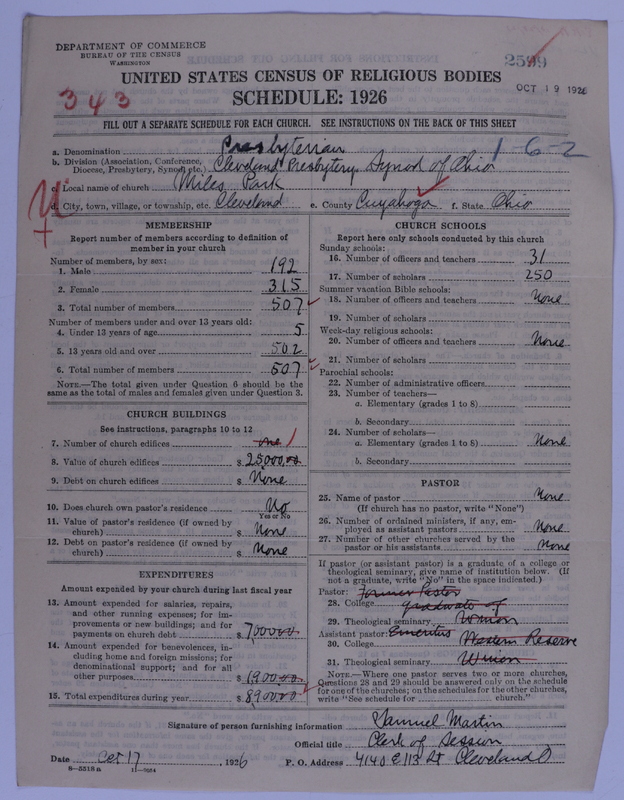 DEPARTMENT OF COMMERCE
BUREAU OF THE CENSUS
WASHINGTON
2599
OCT 19 1926
UNITED STATES CENSUS OF RELIGIOUS BODIES
343
SCHEDULE: 1926
FILL OUT A SEPARATE SCHEDULE FOR EACH CHURCH. SEE INSTRUCTIONS ON THE BACK OF THIS SHEET
a. Denomination Presbyterian 1-6-2
b. Division (Association, Conference, Diocese, Presbytery, Synod, etc.) Cleveland Presbytery, Synod of Ohio
c. Local name of church Miles Park
d. City, town, village, or township, etc. Cleveland e. County Cuyahoga f. State Ohio
MEMBERSHIP
Report number of members according to definition of
member in your church
Number of members, by sex:
1. Male 192
2. Female 315
3. Total number of members 507
Number of members under and over 13 years old:
4. Under 13 years of age 5
5. 13 years old and over 502
6. Total number of members 507
NOTE.—The total given under Question 6 should be the
same as the total of males and females given under Question 3.
CHURCH BUILDINGS
See instructions, paragraphs 10 to 12
7. Number of church edifices one 1
8. Value of church edifices $ 25000.00
9. Debt on church edifices $ None
10. Does church own pastor's residence No
Yes or No
11. Value of pastor's residence (if owned by
church) $ None
12. Debt on pastor's residence (if owned by
church) $ None
EXPENDITURES
Amount expended by your church during last fiscal year
13. Amount expended for salaries, repairs,
and other running expenses; for im-
provements or new buildings; and for
payments on church debt $ 7,000.00
14. Amount expended for benevolences, in-
cluding home and foreign missions; for
denominational support; and for all
other purposes $ 1900.00
15. Total expenditures during year $ 8900.00
CHURCH SCHOOLS
Report here only schools conducted by this church
Sunday schools:
16. Number of officers and teachers 31
17. Number of scholars 250
Summer vacation Bible schools:
18. Number of officers and teachers None
19. Number of scholars
Week-day religious schools:
20. Number of officers and teachers None
21. Number of scholars
Parochial schools:
22. Number of administrative officers
23. Number of teachers—
a. Elementary (grades 1 to 8)
b. Secondary
24. Number of scholars—
a. Elementary (grades 1 to 8) None
b. Secondary
PASTOR
25. Name of pastor None
(If church has no pastor, write "None")
26. Number of ordained ministers, if any, em-
ployed as assistant pastors None
27. Number of other churches served by the
pastor or his assistants None
If pastor (or assistant pastor) is a graduate of a college or
theological seminary, give name of institution below. (If
not a graduate, write "No" in the space indicated.)
Pastor: Former Pastor
28. College graduate of
29. Theological seminary Union
Assistant pastor: Emeritus
30. College Western Reserve
31. Theological seminary Union
NOTE.—Where one pastor serves two or more churches,
Questions 28 and 29 should be answered only on the schedule
for one of the churches; on the schedules for the other churches,
write "See schedule for church."
Signature of person furnishing information Samuel Martin
Official title Clerk of Session
Date Oct 17, 1926 P. O. Address 4140 E 113 St Cleveland O
8—5518 a 11—9024